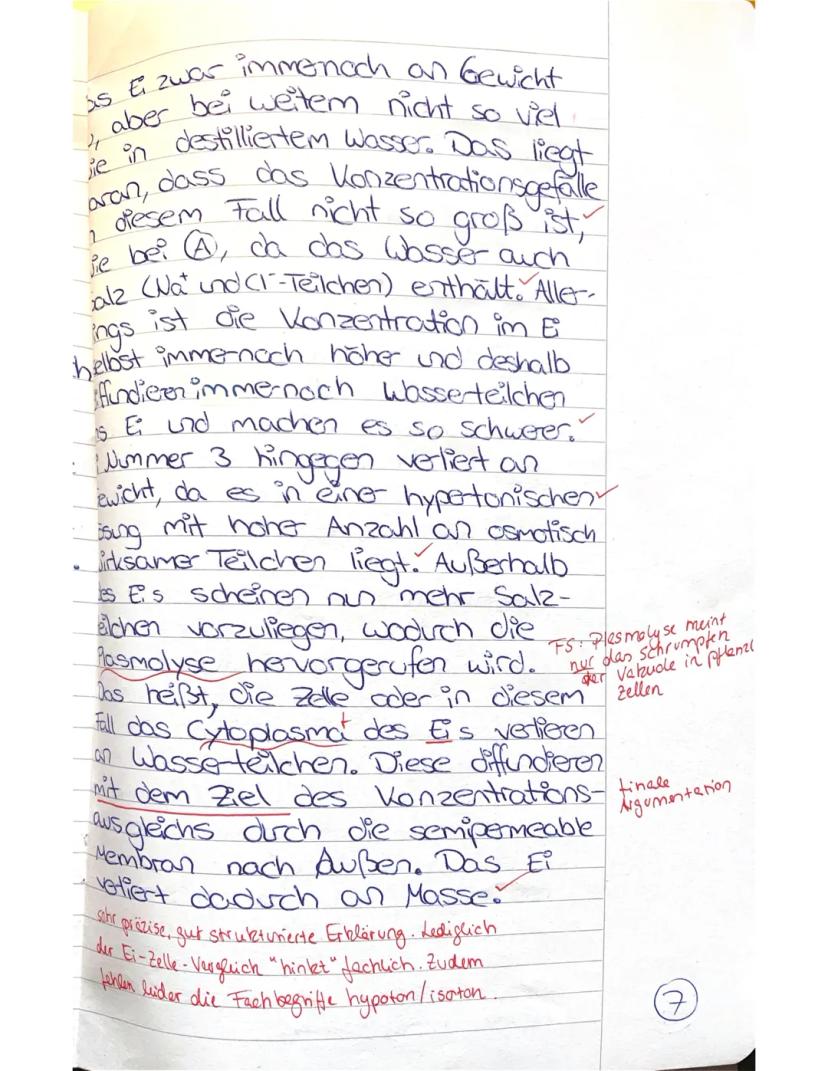 as Ei zwar immernoch an Gewicht
, aber bei weitem nicht so viel
ie in destilliertem Wasser. Das liegt
aran, dass das Konzentrationsgefälle
n diesem Fall nicht so groß ist,
ie bei Ⓐ, da das Wasser auch
alz (Na⁺ und Cl⁻-Teilchen) enthält. Aller-
ings ist die Konzentration im Ei
selbst immernoch höher und deshalb
iffundieren immernoch Wasserteilchen
s Ei und machen es so schwerer.
Nummer 3 hingegen verliert an
ewicht, da es in einer hypertonischen
ösung mit hoher Anzahl an osmotisch
irksamer Teilchen liegt. Außerhalb
es Eis scheinen nun mehr Salz-
eilchen vorzuliegen, wodurch die
Plasmolyse hervorgerufen wird.
FS: Plasmolyse meint
nur das Schrumpfen
der Vakuole in pflanzl
zellen
Das heißt, die Zelle oder in diesem
Fall das Cytoplasma des Eis verlieren
an Wasserteilchen. Diese diffundieren
mit dem Ziel des Konzentrations-
finale
Argumentation
ausgleichs durch die semipermeable
Membran nach Außen. Das Ei
verliert dadurch an Masse.
sehr präzise, gut strukturierte Erklärung. Lediglich
der Ei-Zelle-Vergleich "hinkt" fachlich. Zudem
fehlen leider die Fachbegriffe hypoton/isoton.
7